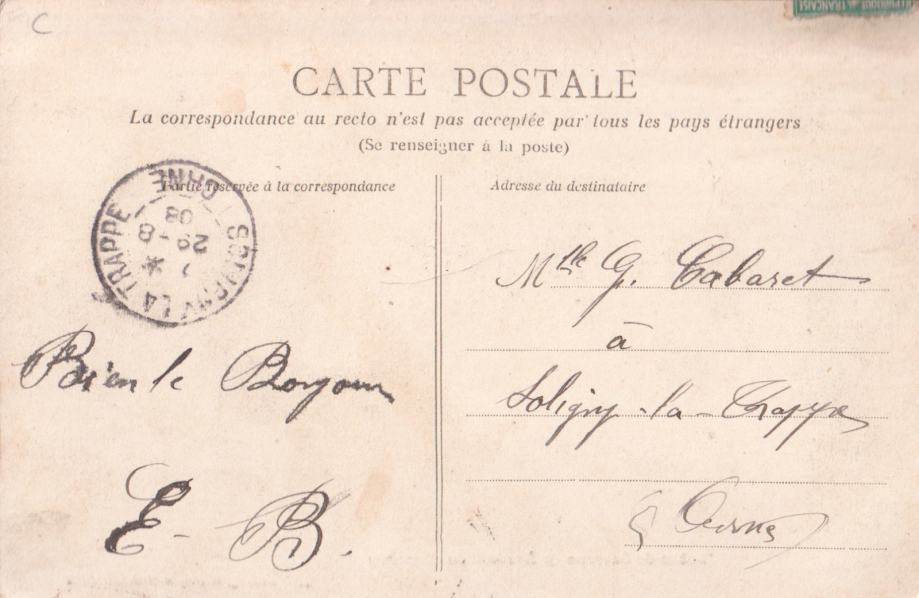 C
RÉPUBLIQUE FRANÇAISE
CARTE POSTALE
La correspondance au recto n'est pas acceptée par tous les pays étrangers
(Se renseigner à la poste)
Partie réservée à la correspondance
Adresse du destinataire
SOLIGNY LA TRAPPE ORNE
7 *
29 - 8
08
Mlle G. Cabaret
à
Soligny-la-Trappe
(Orne)
Bien le Bonjour
E - B.